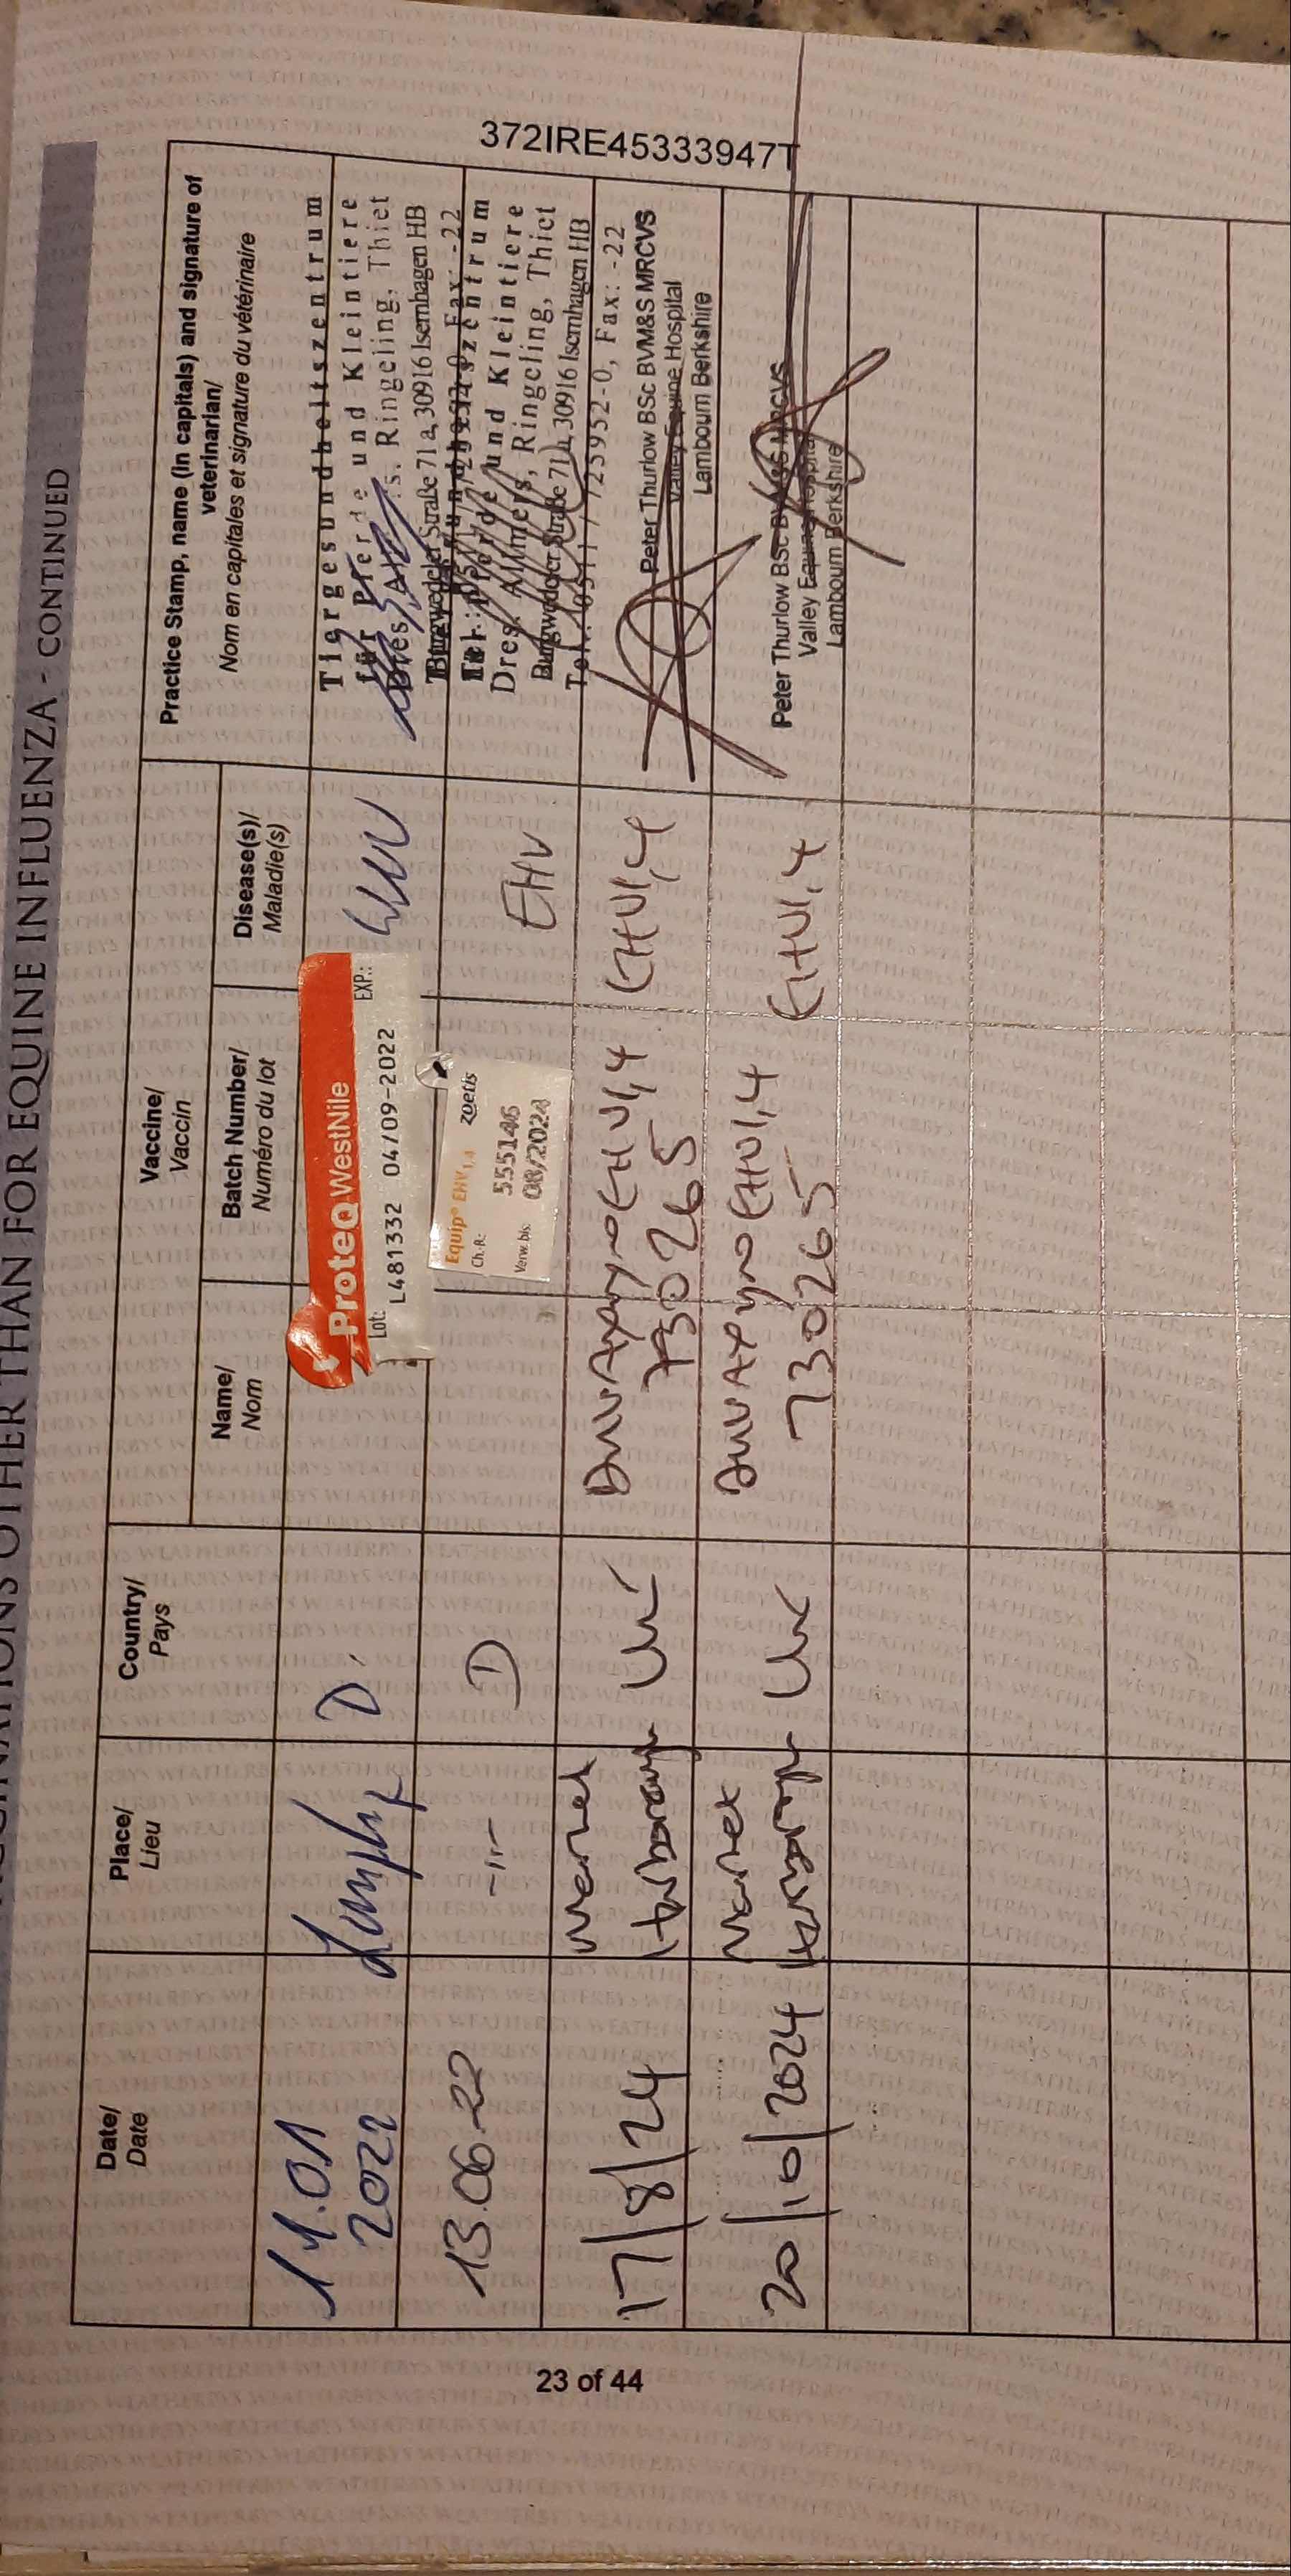 VACCINATIONS OTHER THAN FOR EQUINE INFLUENZA - CONTINUED
372IRE45333947T
Date/
Date
Place/
Lieu
Country/
Pays
Vaccine/
Vaccin
Name/
Nom
Batch Number/
Numéro du lot
Disease(s)/
Maladie(s)
Practice Stamp, name (in capitals) and signature of
veterinarian/
Nom en capitales et signature du vétérinaire
11.01
2022
D
ProteQ WestNile
Lot: EXP.:
L481332 04/09-2022
Tiergesundheitszentrum
für Pferde und Kleintiere
Ringeling, Thiet
Straße 71 a, 30916 Isernhagen HB
Fax: -22
13.06.22
-11-
D
Equip® EHV 1,4
zoetis
Ch.-B.: 555146
Verw. bis: 08/2024
EHV
und Kleintiere
Dres. Ahlmers, Ringeling, Thiet
Burgwedeler Straße 71 a, 30916 Isernhagen HB
Tel.: 0511 / 725952-0, Fax: -22
17/8/24
Market
Harborough
UK
EHV1,4
730265
EHV1,4
Peter Thurlow BSc BVM&S MRCVS
Valley Equine Hospital
Lambourn Berkshire
20/10/2024
Market
Harborough
UK
EHV1,4
730265
EHV1,4
Peter Thurlow BSc BVM&S MRCVS
Valley Equine Hospital
Lambourn Berkshire
23 of 44